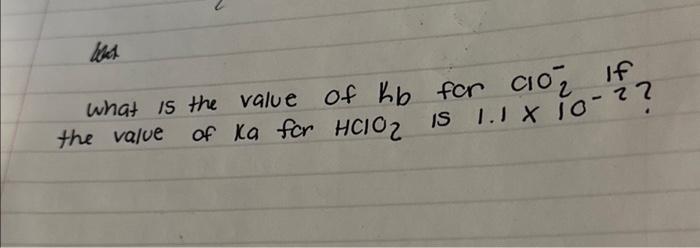 What is the value of Kb for ClO₂⁻ if
the value of Ka for HClO₂ is 1.1 x 10⁻²?